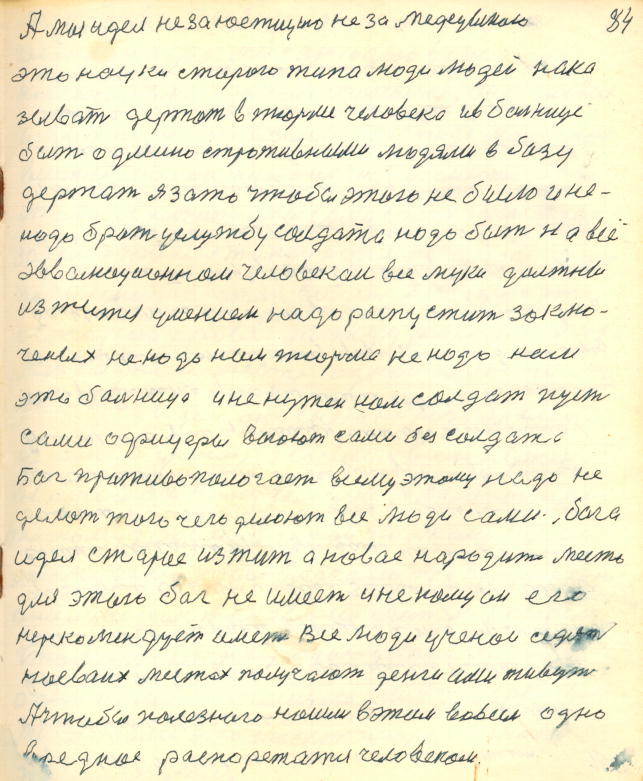 84
А мои идея не за юстицию не за медецинаю
это науки старого типа люди людей нака
зывать держат в тюрме человека ив балнице
быт одмино стротивными людями в базу
держат я зато чтобы этого не было и не-
нодо брат услужбу солдата нодо быт на всё
эвволюционном человекам все муки должны
изжится умением надо распустит заклю-
ченых ненодо нам тюрма не нодо нам
это балница и не нужен нам солдат пуст
сами офицеры воюют сами без солдат.
Бог противопологает всему этому надо не
делат того чего делоют все люди сами, бога
идея старое изтит а новае народить место
для этого бог не имеет и не кому он его
нерекомендует имет Все люди ученои сидят
насваих местах получают денги ими живут
А чтобы полезного нашли в этом вовсем одно
вредное распорежатся человеком.